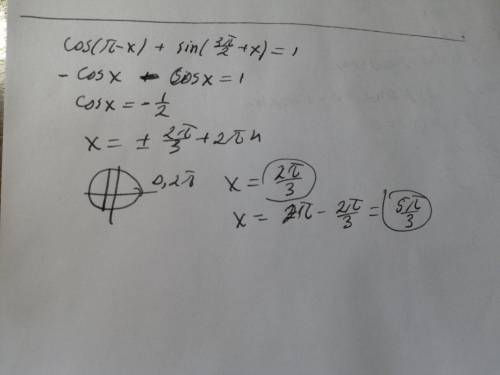 cos(π-x) + sin(3π/2+x)=1
- cosx - cosx = 1
cosx = -1/2
x = ± 2π/3 + 2πn
0, 2π
x = 2π/3
x = 2π - 2π/3 = 5π/3